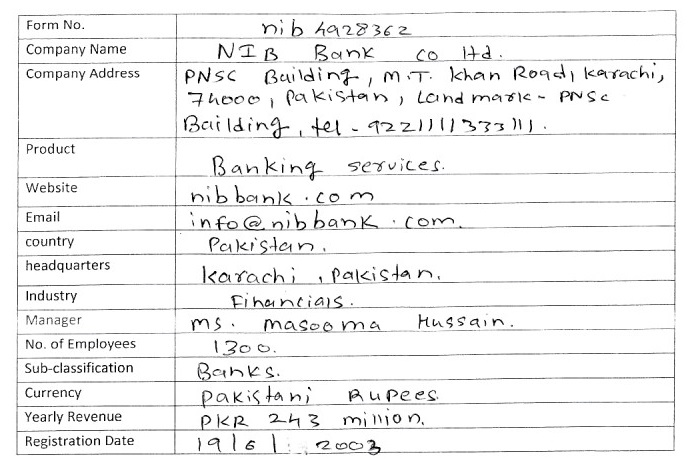 Form No. nib 4928362
Company Name NIB Bank co ltd.
Company Address PNSC Building, M.T. khan Road, karachi,
74000, Pakistan, Landmark - PNSC
Building, tel - 922111133311.
Product Banking services.
Website nibbank.com
Email info@nibbank.com.
country Pakistan.
headquarters karachi, Pakistan.
Industry Financials.
Manager ms. masooma Hussain.
No. of Employees 1300.
Sub-classification Banks.
Currency pakistani Rupees.
Yearly Revenue PKR 243 million.
Registration Date 19/6/. 2003